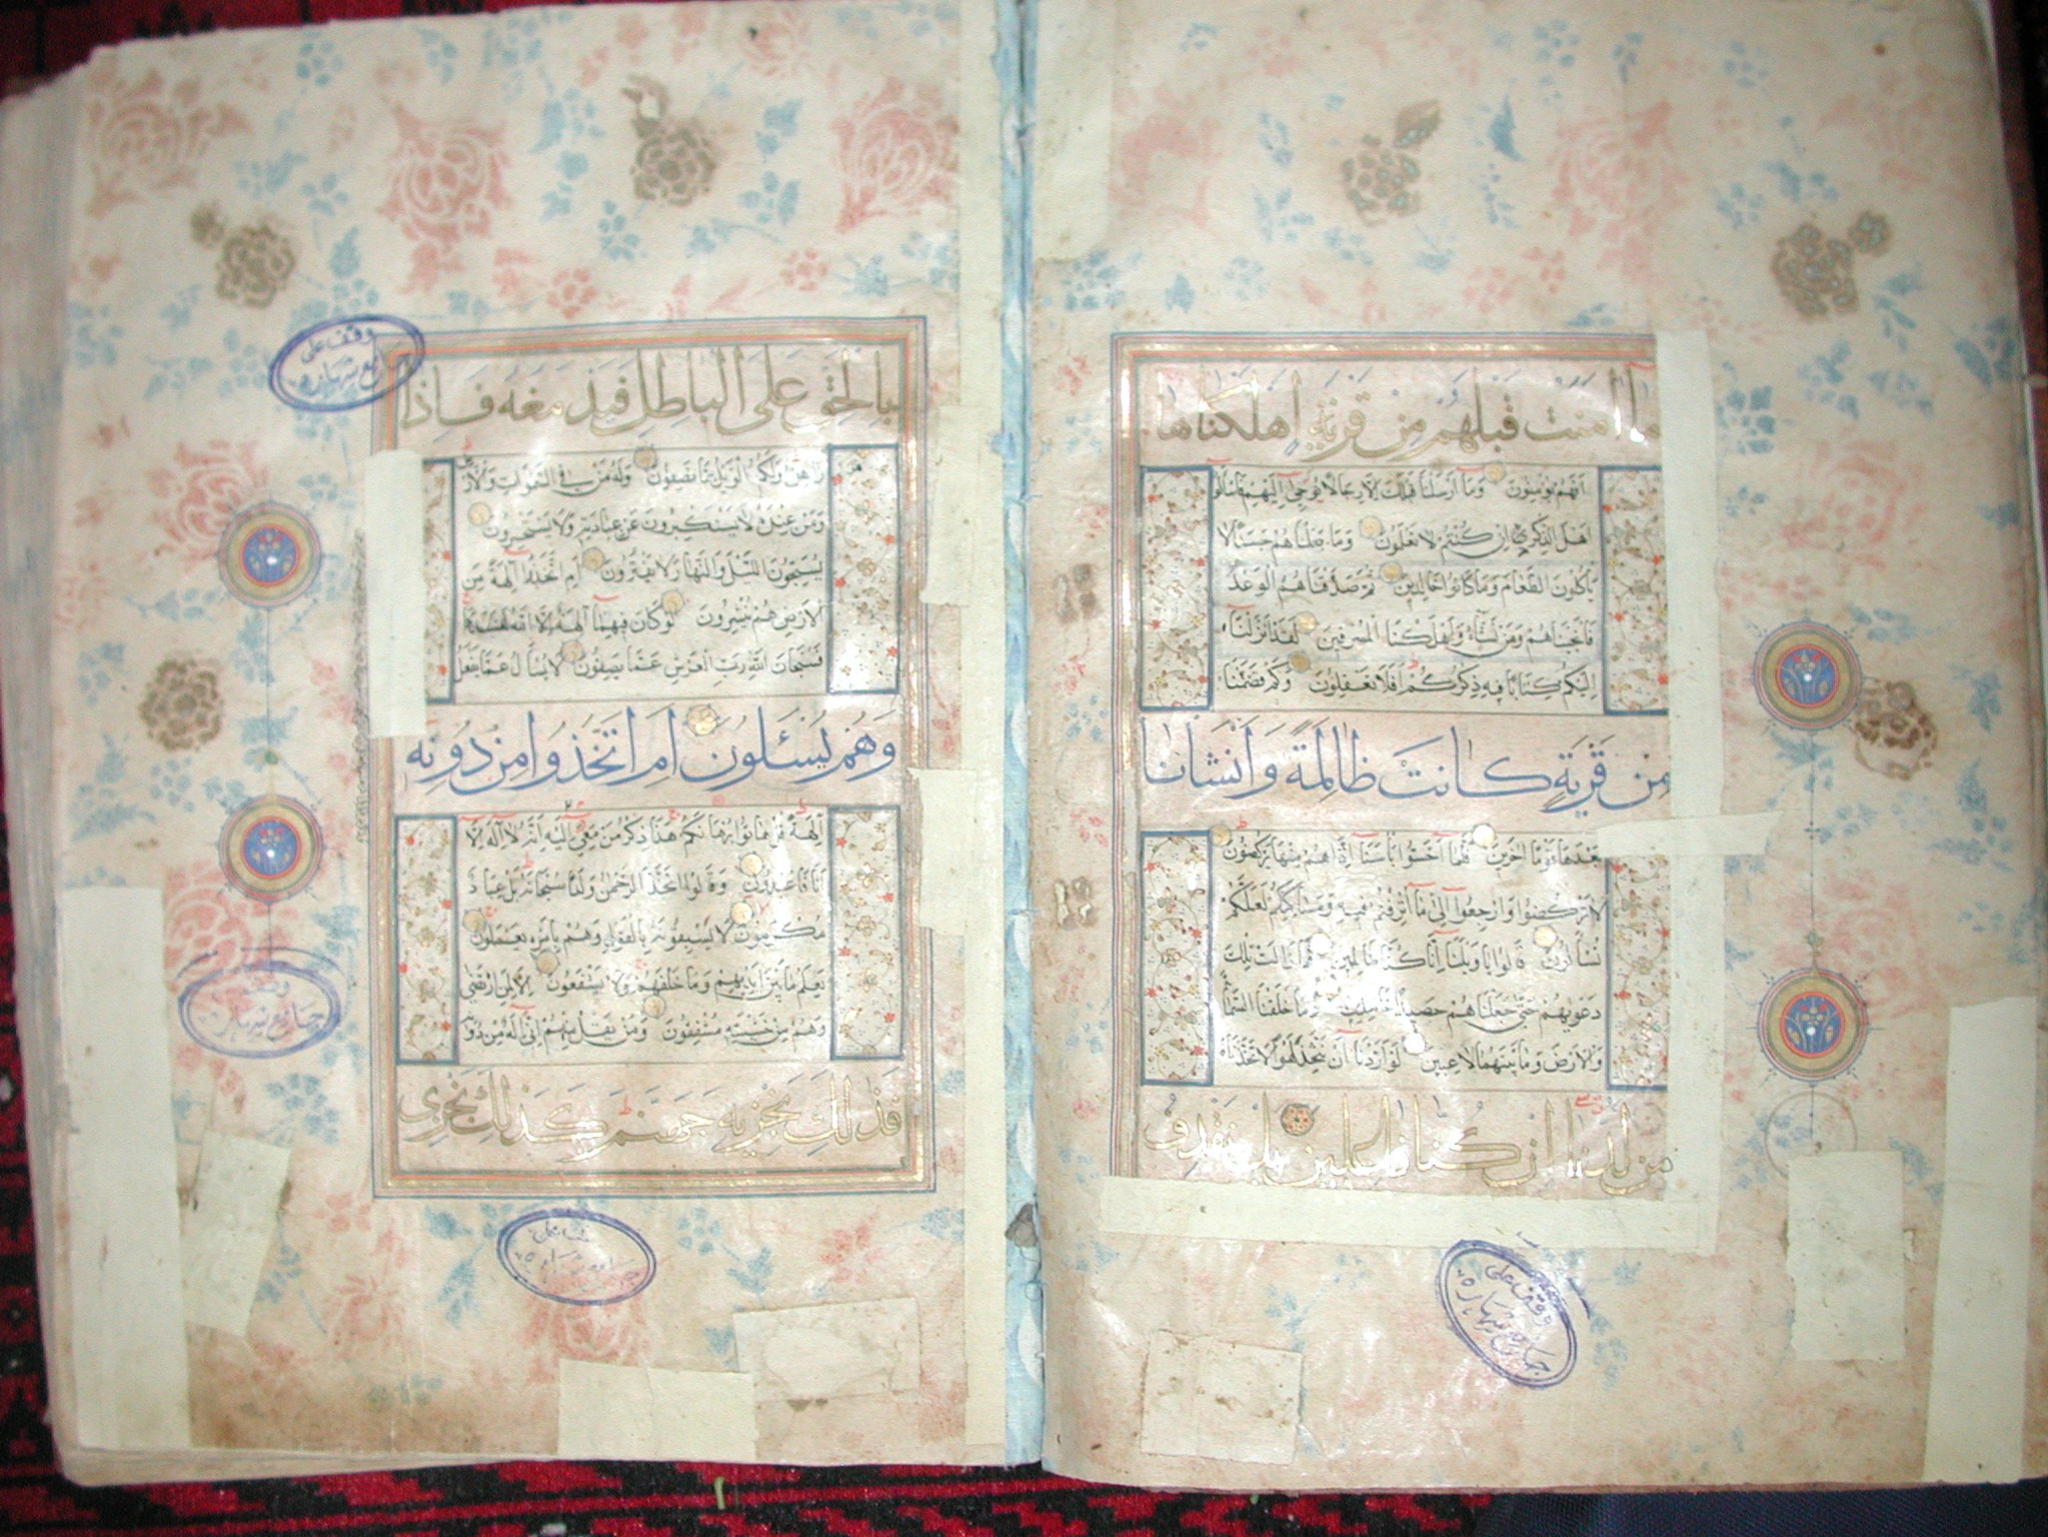 ما آمنت قبلهم من قرية اهلكناها
افهم يؤمنون وما ارسلنا قبلك الا رجالا نوحي اليهم فاسألوا
اهل الذكر ان كنتم لا تعلمون وما جعلناهم جسدا لا
يأكلون الطعام وما كانوا خالدين ثم صدقناهم الوعد
فانجيناهم ومن نشاء واهلكنا المسرفين لقد انزلنا
اليكم كتابا فيه ذكركم افلا تعقلون وكم قصمنا
من قرية كانت ظالمة وانشأنا
بعدها قوما آخرين فلما احسوا بأسنا اذا هم منها يركضون
لا تركضوا وارجعوا الى ما اترفتم فيه ومساكنكم لعلكم
تسألون قالوا يا ويلنا انا كنا ظالمين فما زالت تلك
دعويهم حتى جعلناهم حصيدا خامدين وما خلقنا السماء
والارض وما بينهما لاعبين لو اردنا ان نتخذ لهوا لاتخذناه
من لدنا ان كنا فاعلين بل نقذف
وقف على
بالحق على الباطل فيدمغه فاذا
زاهق ولكم الويل مما تصفون وله من في السموات والارض
ومن عنده لا يستكبرون عن عبادته ولا يستحسرون
يسبحون الليل والنهار لا يفترون ام اتخذوا آلهة من
الارض هم ينشرون لو كان فيهما آلهة الا الله لفسدتا
فسبحان الله رب العرش عما يصفون لا يسأل عما يفعل
وَهُمْ يُسْئَلُونَ اَمِ اتَّخَذُوا مِنْ دُونِهِ
آلهة قل هاتوا برهانكم هذا ذكر من معي اليه انه لا اله الا
انا فاعبدون وقالوا اتخذ الرحمن ولدا سبحانه بل عباد
مكرمون لا يسبقونه بالقول وهم بامره يعملون
يعلم ما بين ايديهم وما خلفهم ولا يشفعون الا لمن ارتضى
وهم من خشيته مشفقون ومن يقل منهم اني اله من دونه
فذلك نجزيه جهنم كذلك نجزى
وقف على